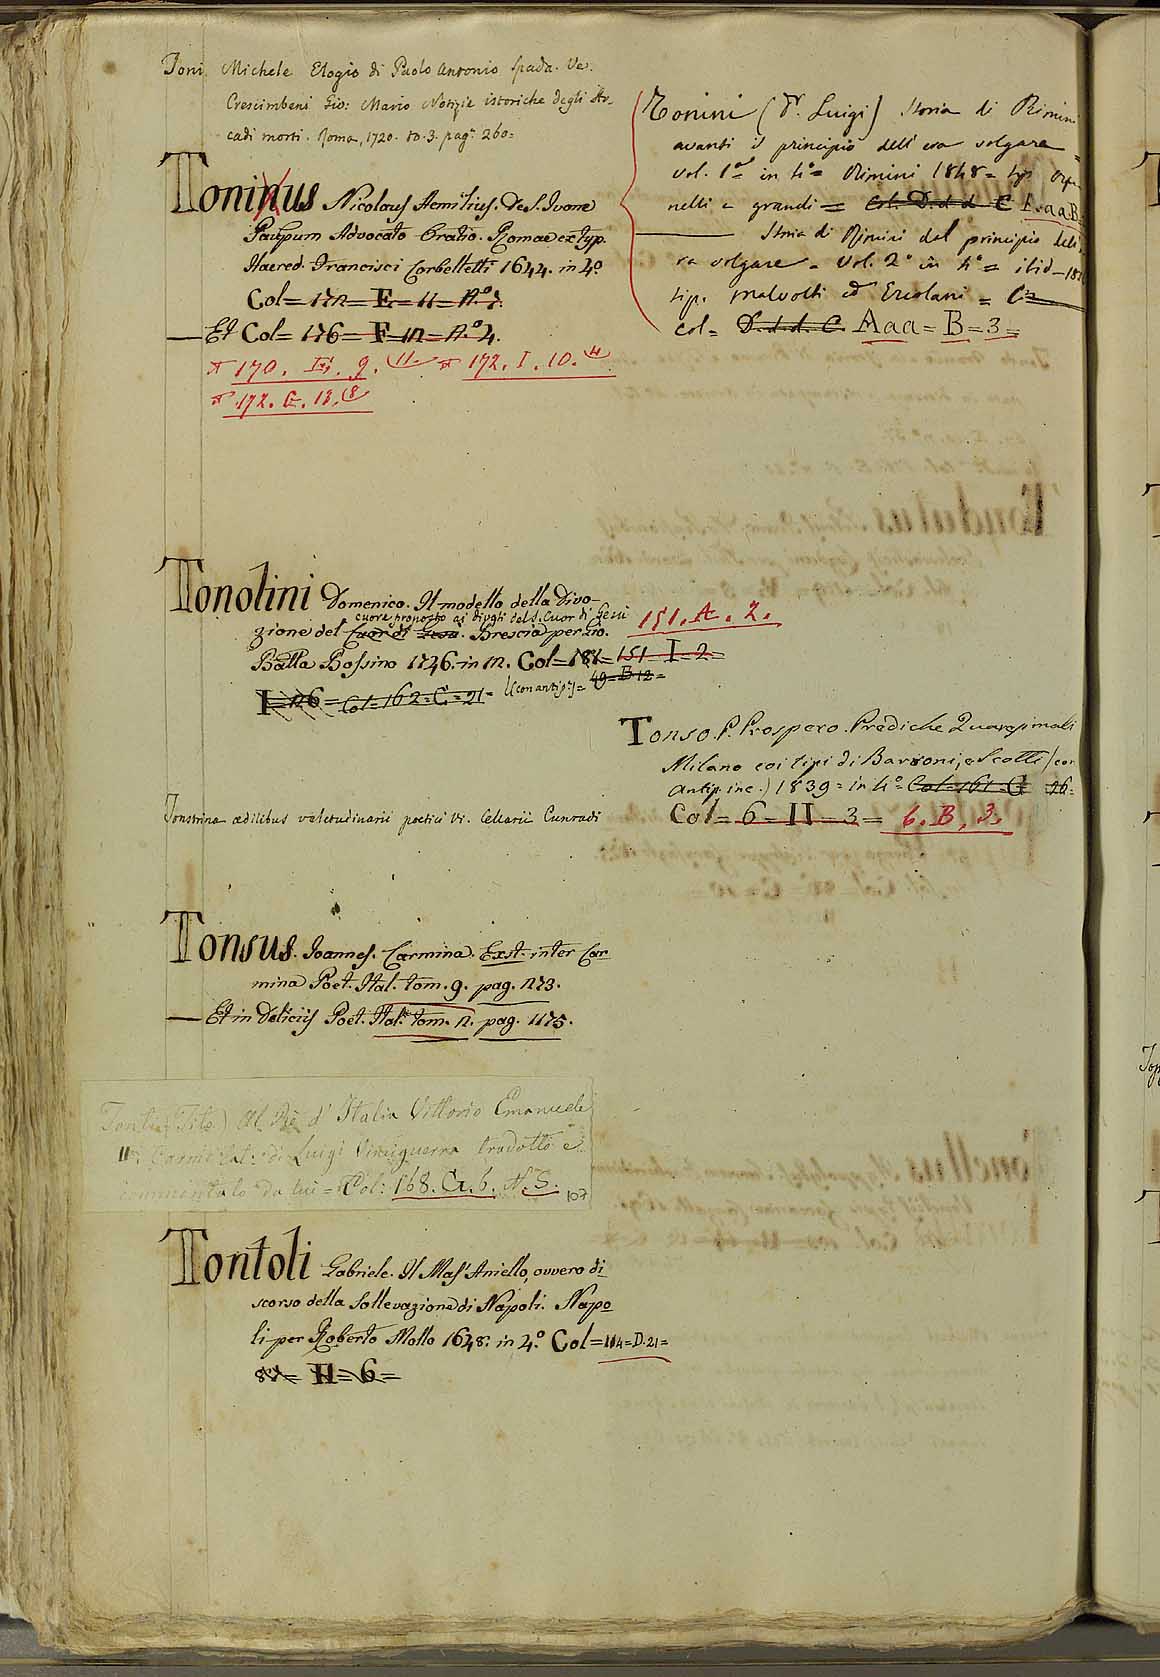 Toni Michele Elogio di Paolo Antonio Spada. Ve.
Crescimbeni Gio: Mario Notizie istoriche degli Ar-
cadi morti. Roma, 1720. to. 3. pag. 260=
Toninus Nicolaus Aemilius. De S. Ivone
Paupum Advocato Oratio. Romae ex typ.
Haered. Francisci Corbelletti 1644. in 4.o
Col= 172= E= 11= N.o 7.
— Et Col= 176= F= 12= N.o 4.
170. 9. (11 172. I. 10. (4
172. G. 13. (8
Tonolini Domenico. Il modello della Divo-
cuore proposto ai divoti del S. Cuor di Gesù
zione del Cuor di Gesù. Brescia per Gio.
Batta Bossino 1746. in 12. Col= 151 = I = 2=
151. A. 2.
I = 26 = Col = 162 = C = 21= (con antip.) = 49 = B 12 =
Tonstrina aedilibus valetudinarii poetici Vi. Celearii Cunradi
Tonsus. Joannes. Carmina. Exst. inter Car
mina Poet. Ital. tom. 9. pag. 273.
— Et in Deliciis Poet. Ital. tom. 2. pag. 1175.
(Tito) Al Re d' Italia Vittorio Emanuele
II. Carme Lat. di Luigi Vinciguerra tradotto e
commentato da lui = Col: 168. G. 6. N. S. 107
Tontoli Gabriele. Il Mas' Aniello, ovvero di
scorso della Sollevazione di Napoli. Napo
li per Roberto Mollo 1648. in 4.o Col= 114=D.21=
87= H= 6=
Tonini (Dr. Luigi) Storia di Rimini
avanti il principio dell' era volgare =
vol. 1o in 4o = Rimini 1848 = tip.
nelli e grandi = Col. D. d. d. C A.aa B=
— Storia di Rimini dal principio dell'
ra volgare = Vol. 2o in 4o = ibid
tip. Malvolti ed Ercolani =
Col= D. d. d. C. Aaa = B = 3 =
Tonso. P. Prospero. Prediche Quaresimali
Milano coi tipi di Bavoni, e Scotti (con
antip. inc.) 1839 = in 4o = Col= 161 = G 26=
Col= 6 = II = 3 = 6. B. 3.